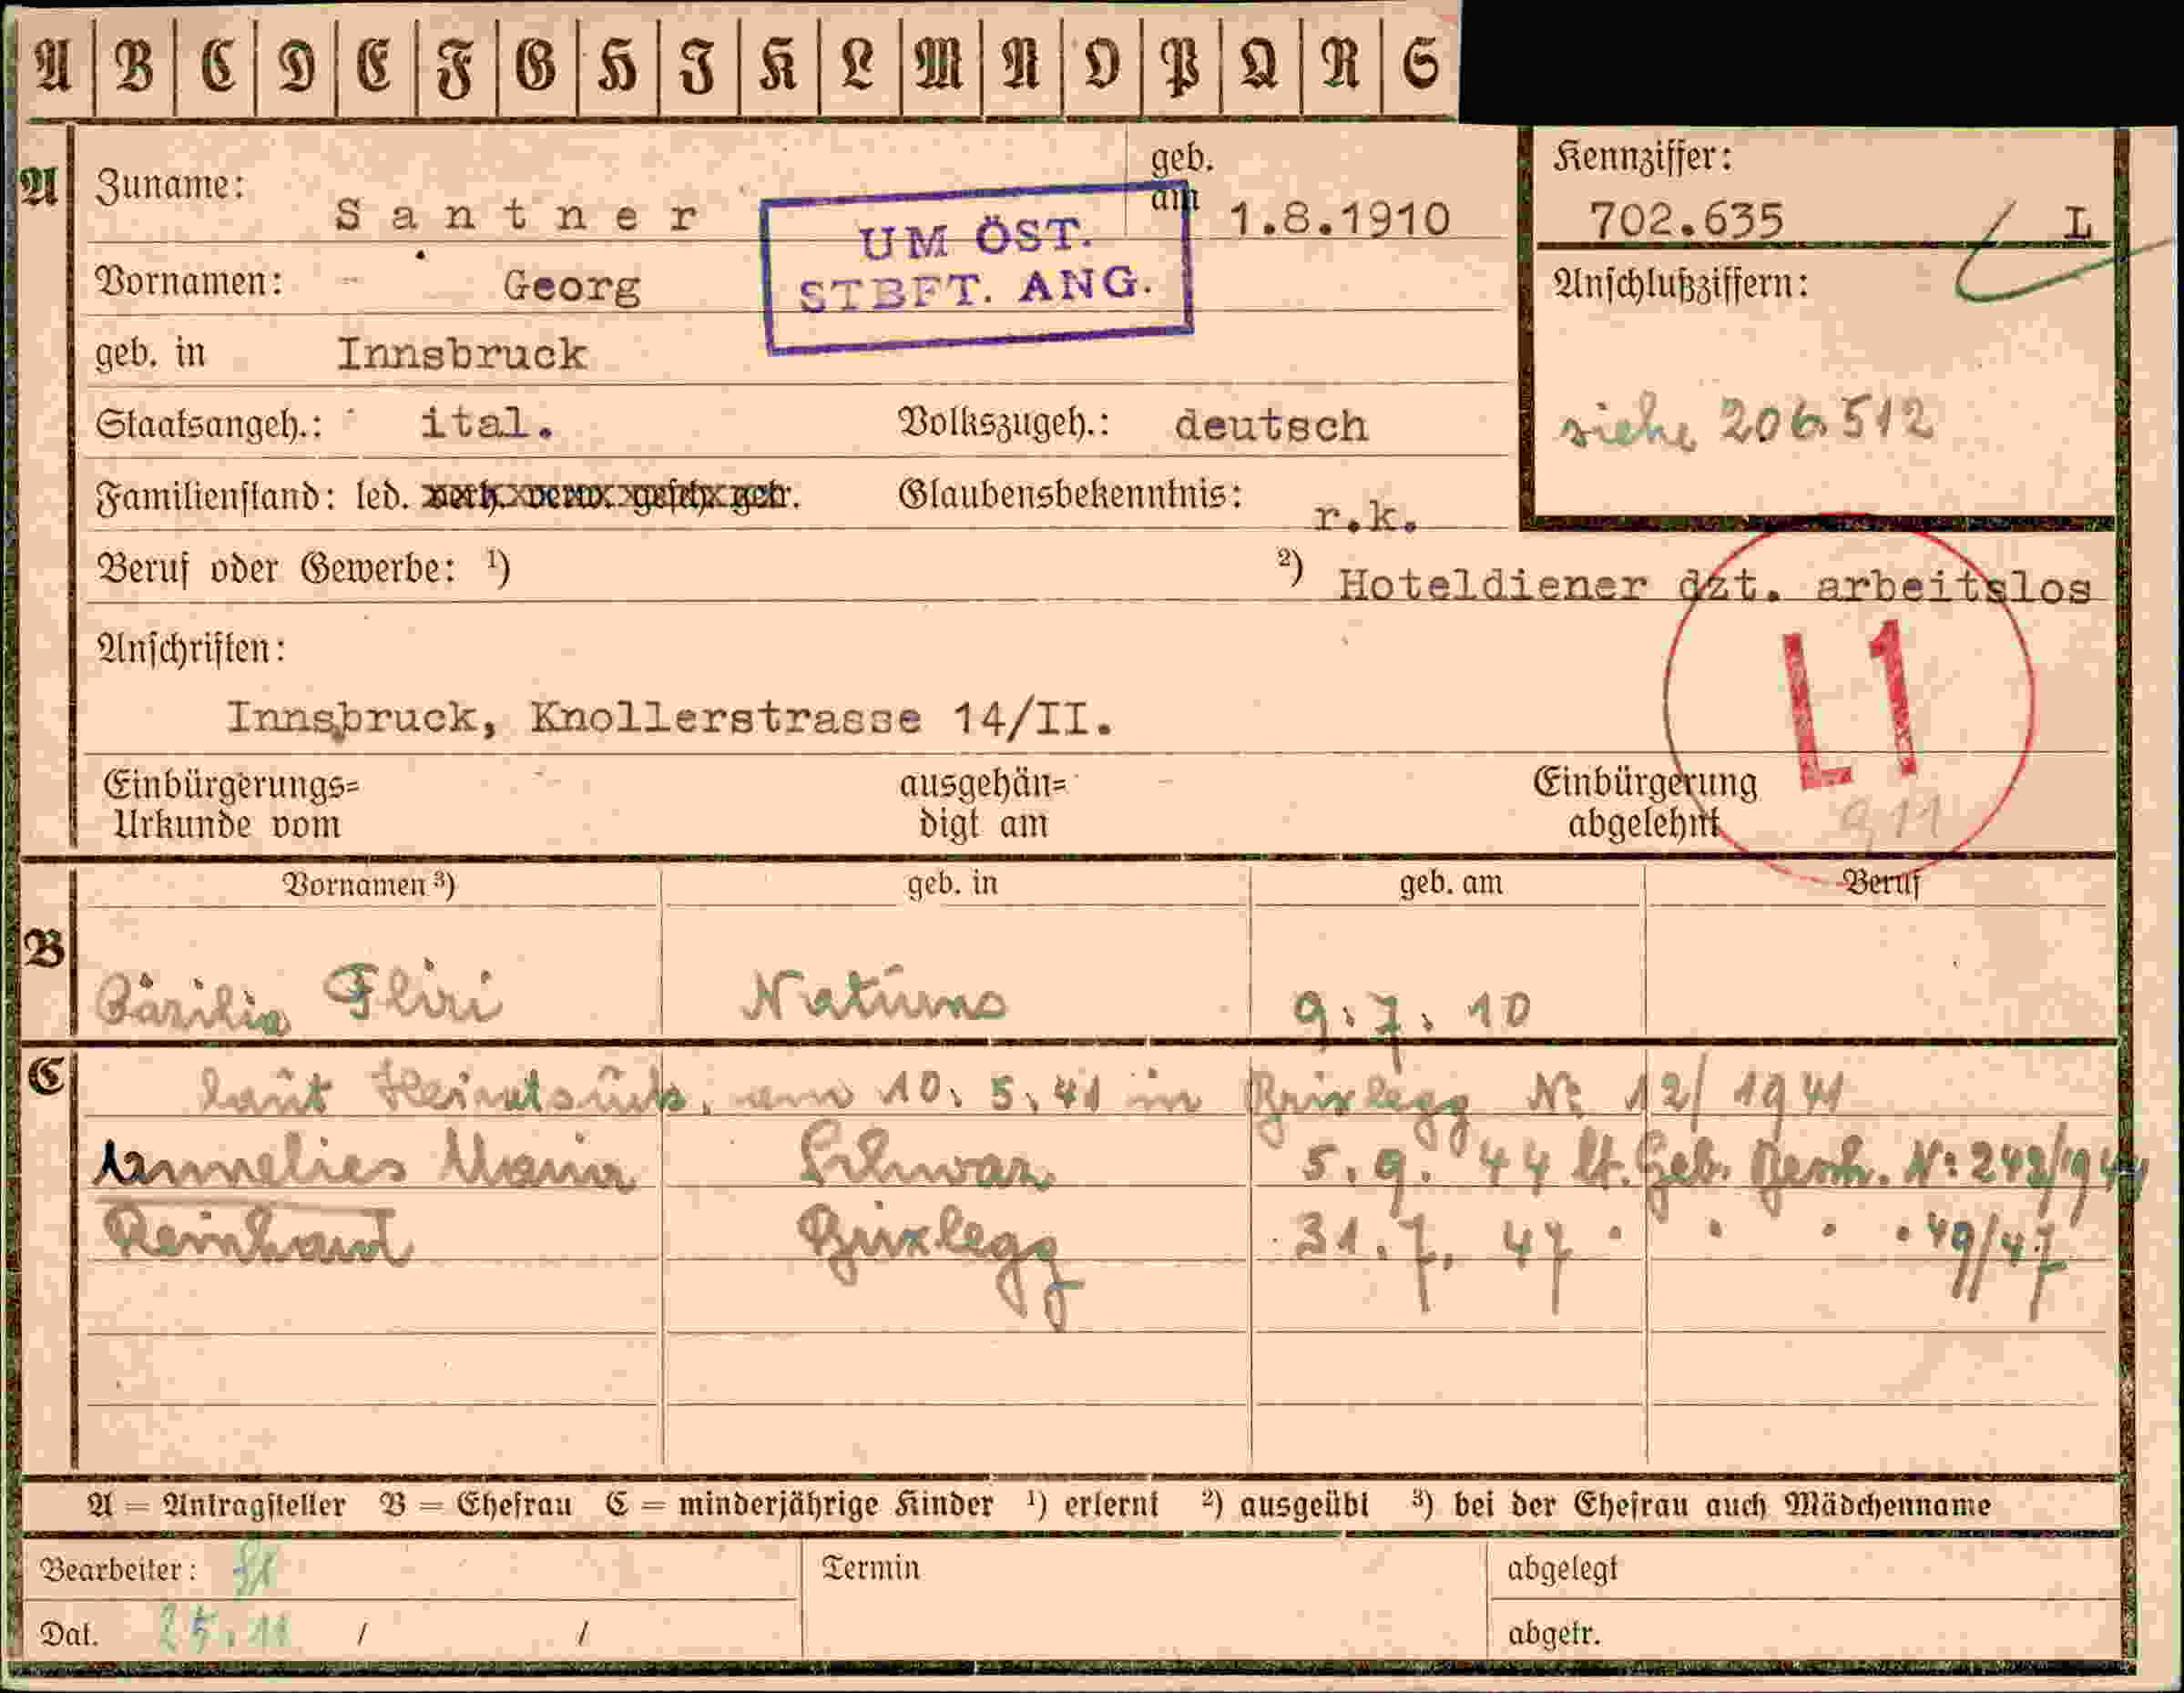 A B C D E F G H I K L M N O P Q R S
A
Zuname: Santner
geb. am 1.8.1910
UM ÖST.
STBFT. ANG.
Kennziffer:
702.635 L
Vornamen: Georg
Anschlußziffern:
geb. in Innsbruck
Staatsangeh.: ital. Volkszugeh.: deutsch
siehe 206512
Familienstand: led. verh. verw. gesch. getr. Glaubensbekenntnis: r.k.
Beruf oder Gewerbe: ¹) ²) Hoteldiener dzt. arbeitslos
Anschriften:
L1
Innsbruck, Knollerstrasse 14/II.
Einbürgerungs= ausgehän= Einbürgerung
Urkunde vom digt am abgelehnt 911
Vornamen ³) geb. in geb. am Beruf
B
Cäzilia Fliri Naturns 9.7.10
C
laut Heiratsurk. am 10.5.41 in Brixlegg Nr 12/1941
Annelies Maria Schwaz 5.9.44 lt. Geb. Besch. Nr 242/1944
Reinhard Brixlegg 31.7.47 " " " " 49/47
A = Antragsteller B = Ehefrau C = minderjährige Kinder ¹) erlernt ²) ausgeübt ³) bei der Ehefrau auch Mädchenname
Bearbeiter: Termin abgelegt
Dat. 25.11 / / abgetr.